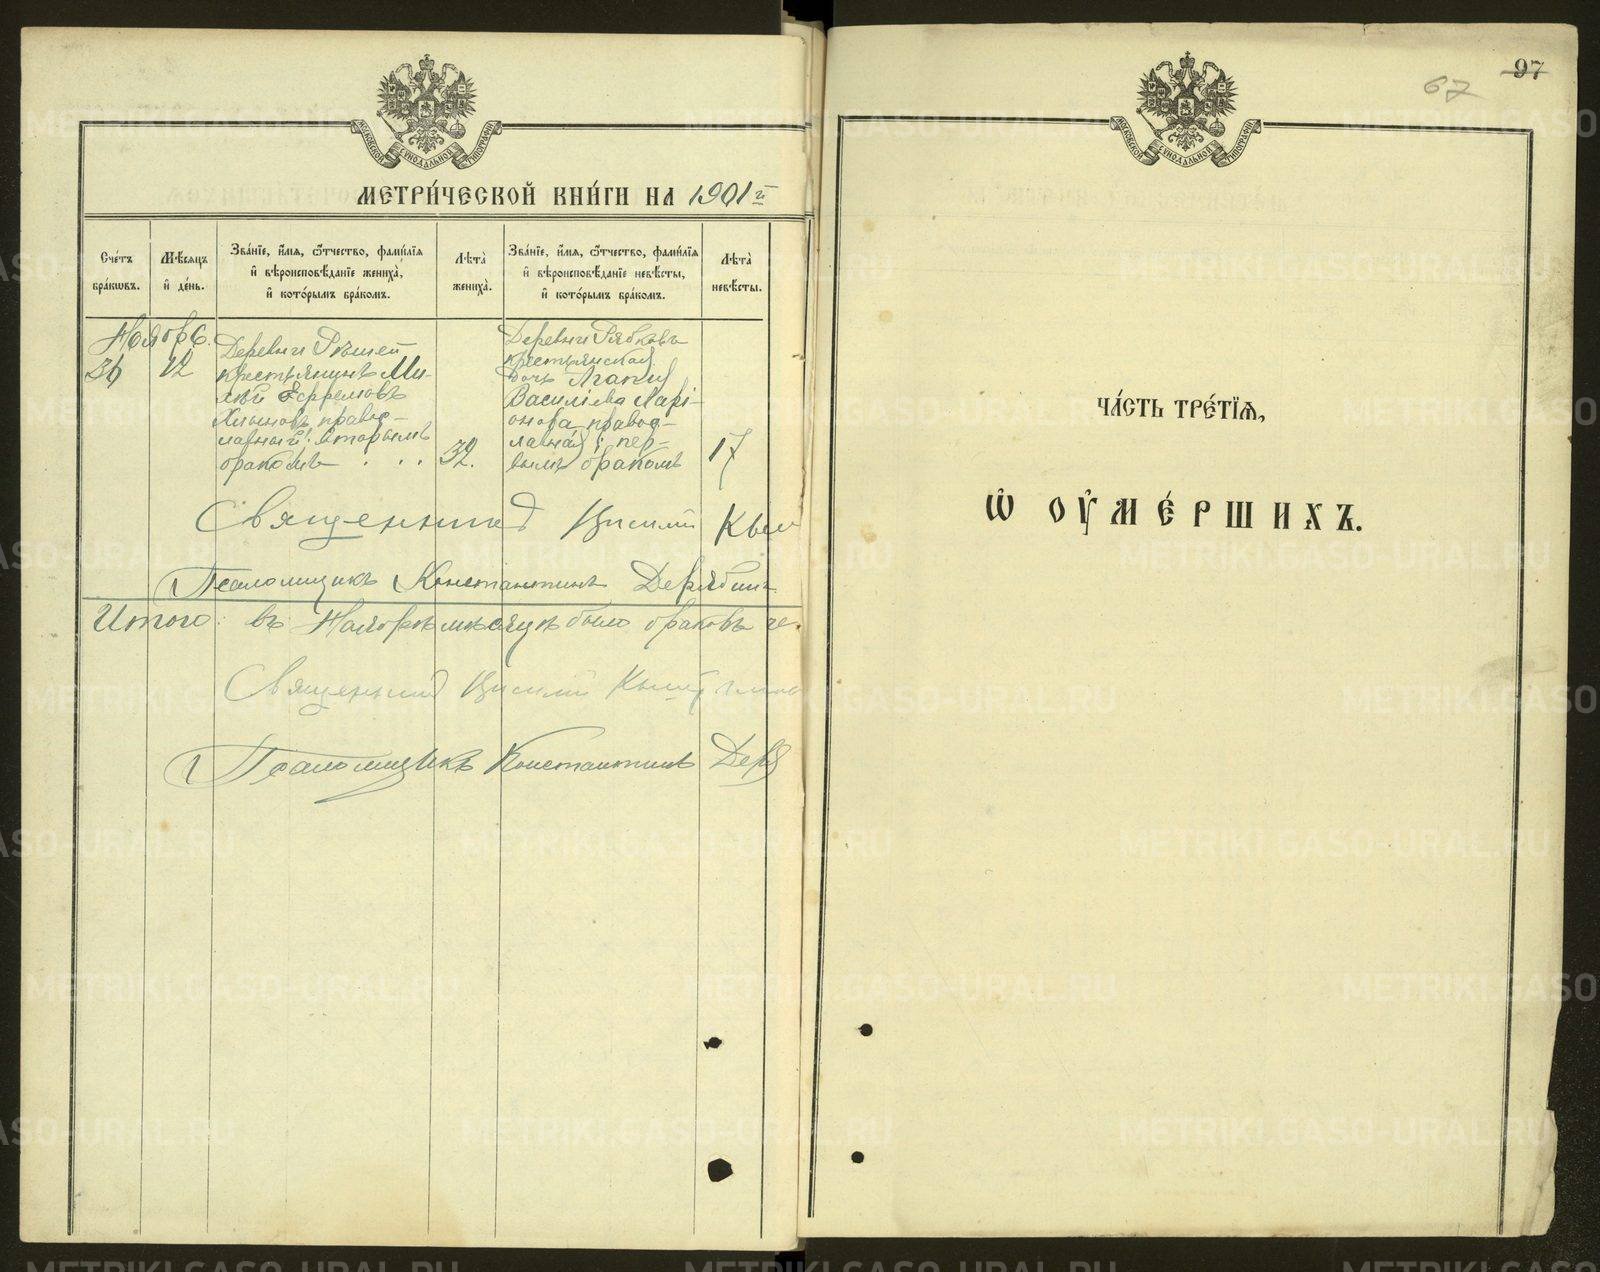 МОСКОВСКОЙ СѴНОДАЛЬНОЙ ТИПОГРАФІИ
МЕТРИ́ЧЕСКОЙ КНИ́ГИ НА 1901 й
Сче́тъ бра́кωвъ.
Мѣ́сяцъ и҆ де́нь.
Зва́нїе, и҆́мя, ѻ҆́тчество, фами́лїя и҆ вѣроисповѣ́данїе жениха̀, и҆ кото́рымъ бра́комъ.
Лѣта̀ жениха̀.
Зва́нїе, и҆́мя, ѻ҆́тчество, фами́лїя и҆ вѣроисповѣ́данїе невѣ́сты, и҆ кото́рымъ бра́комъ.
Лѣта̀ невѣ́сты.
Ноябр
12
Деревни
крестьянинъ Ми-
хѣй Ефремовъ
правос-
лавный; вторымъ
бракомъ . . .
32.
Деревни Рябковъ
крестьянская
дочь Агапія
Василіева Ларі-
онова правос-
лавная; пер-
вымъ бракомъ
17
Священник
Псаломщикъ Константинъ Дерябинъ
Итого: въ Ноябрѣ мѣсяцѣ было браковъ че-
Священник
Псаломщикъ Константинъ Деря
97
67
МОСКОВСКОЙ СѴНОДАЛЬНОЙ ТИПОГРАФІИ
ЧА́СТЬ ТРЕ́ТЇѦ,
Ѡ҆ ОУ҆МЕ́РШИХЪ.
METRIKI.GASO-URAL.RU